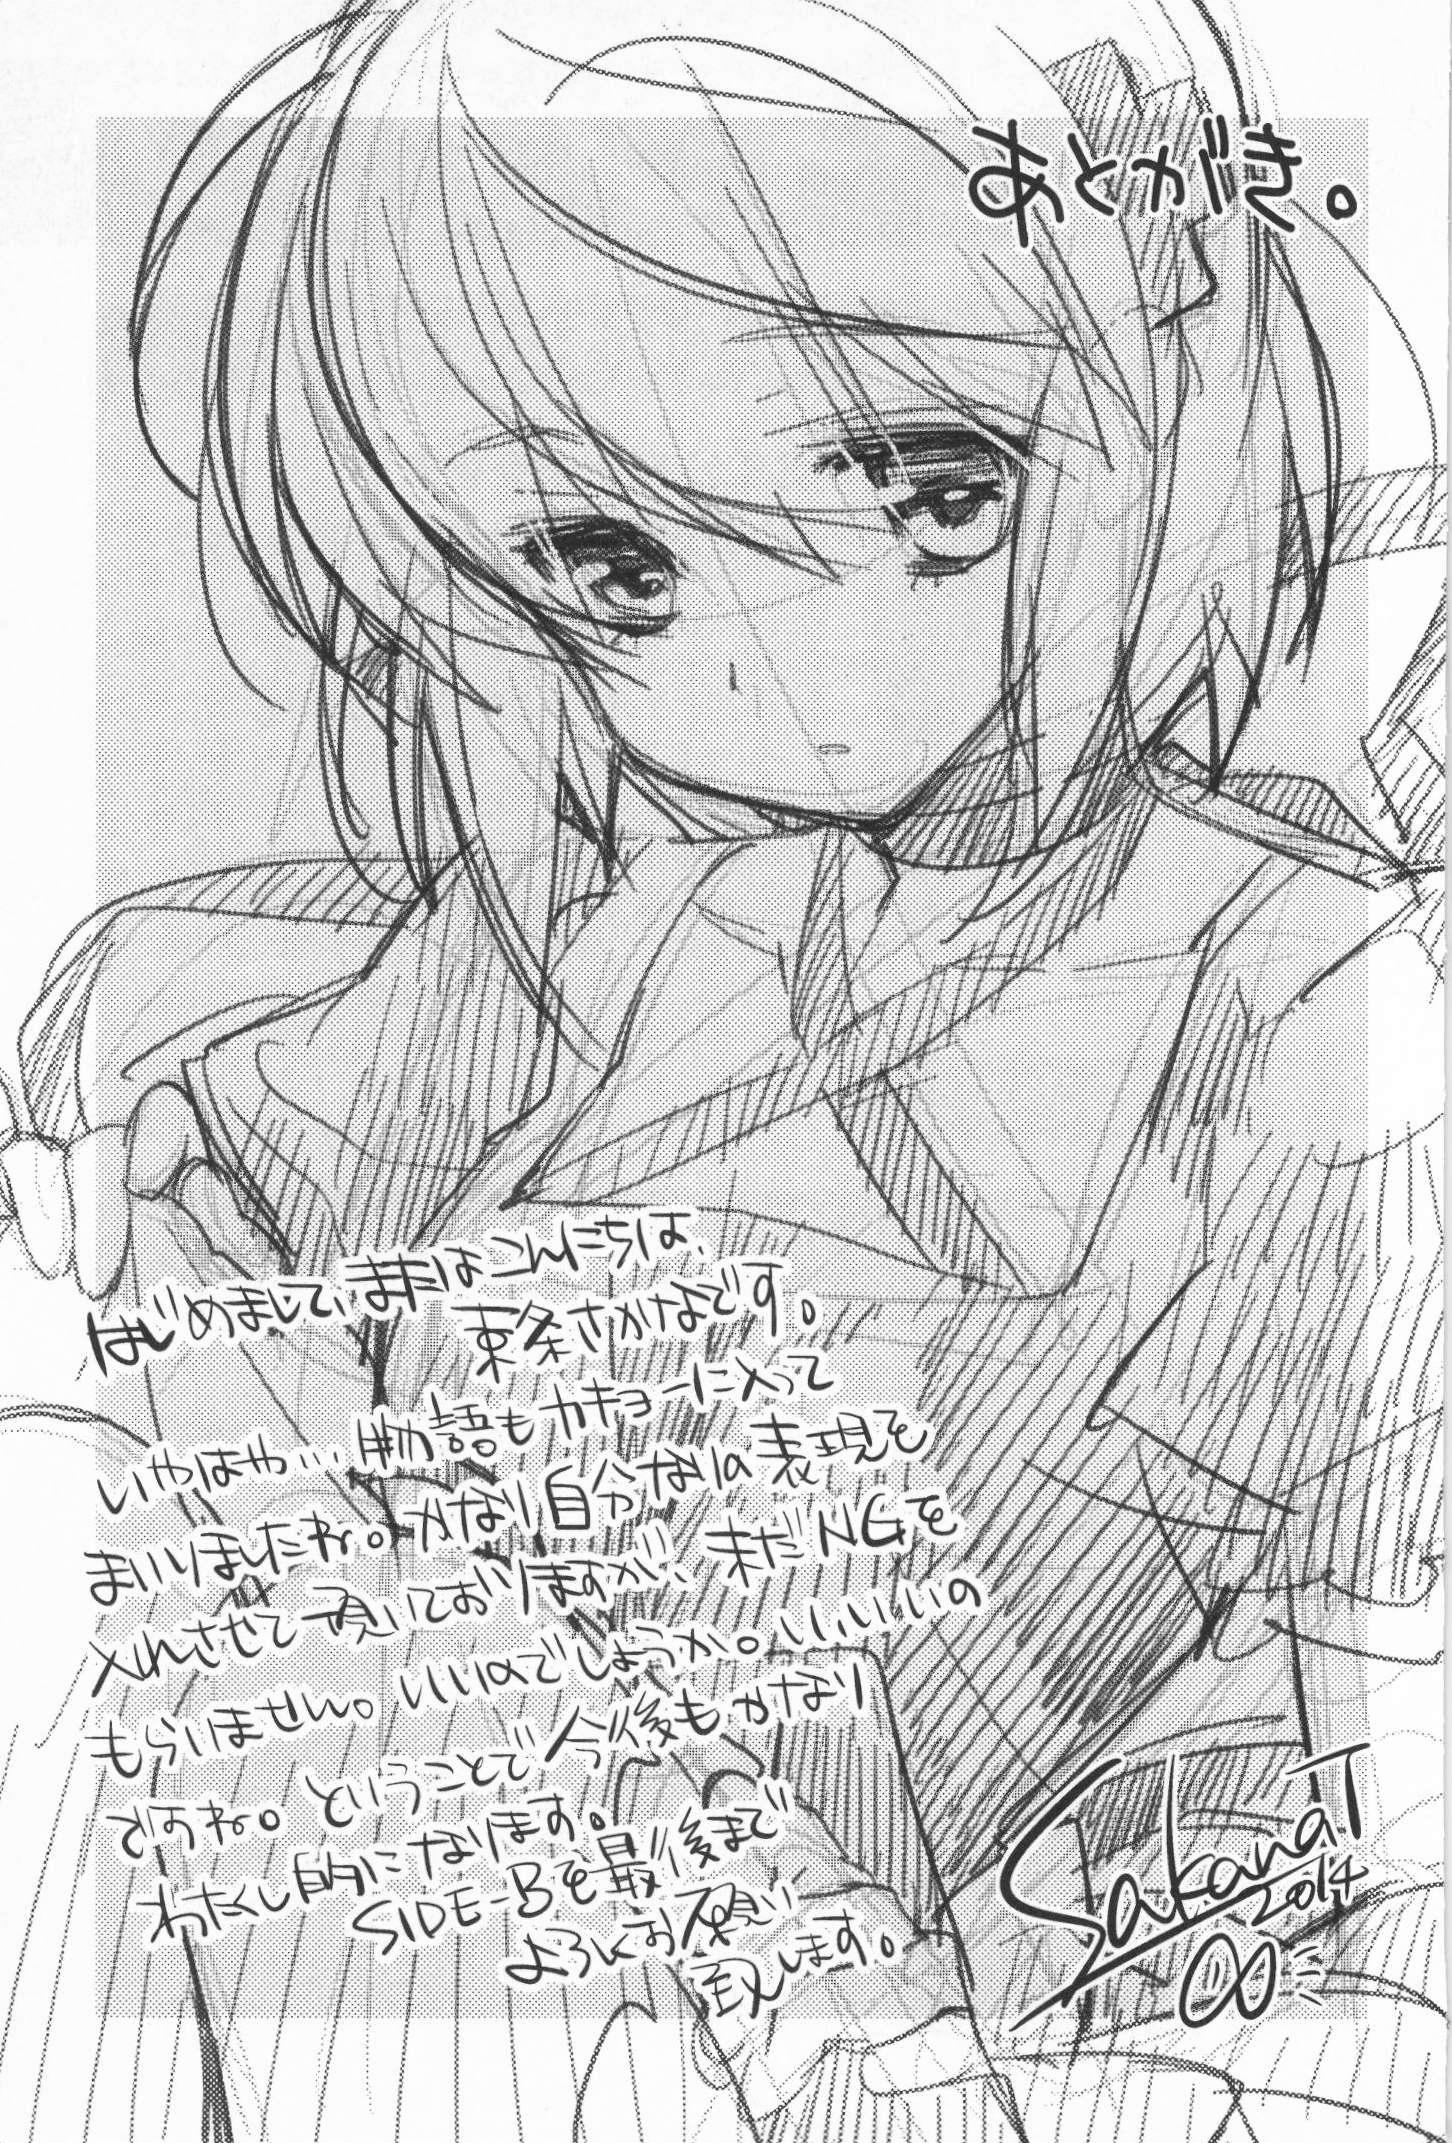 あとがき。
はじめまして、またはこんにちは、
東条さかなです。
いやはや…物語もカキョーに入って
まいりましたね。かなり自分なりの表現を
入れさせて頂いておりますが、まだNGを
もらいません。いいのでしょうか。いいいの
ですね。ということで今後もかなり
わたくし的になります。
SIDE-Bを最後まで
よろしくお願い
致します。
SakanaT
2014